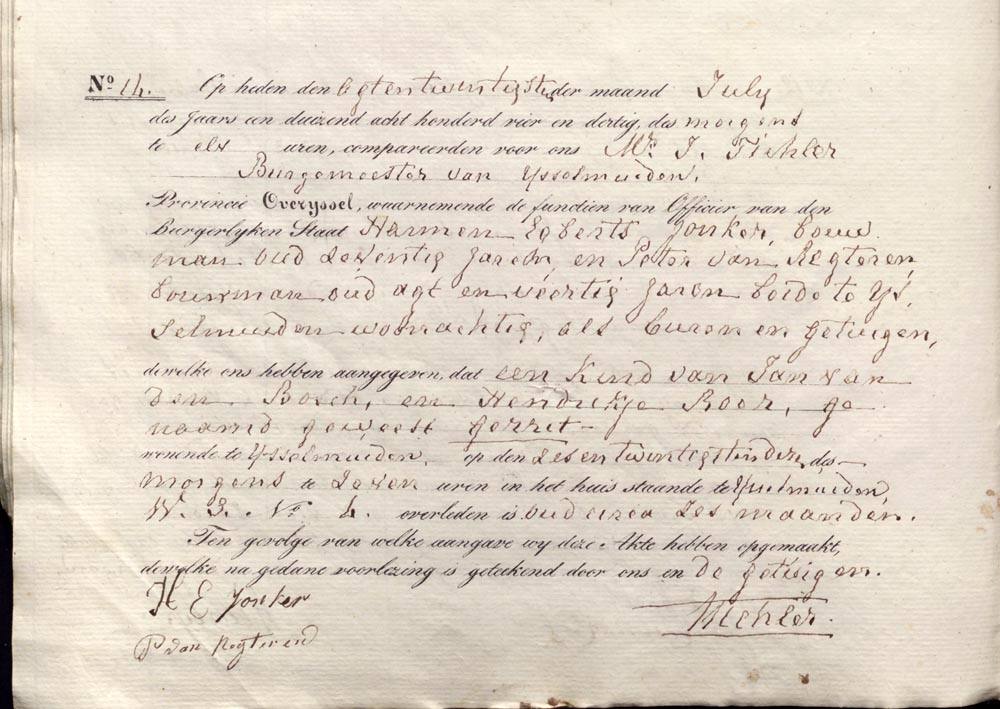 No 14. Op heden den agtentwintigste der maand July
des Jaars een duizend acht honderd vier en dertig, des morgens
te elf uren, compareerden voor ons Mr. J. Tichler
Burgemeester van Ysselmuiden.
Provincie Overyssel, waarnemende de functien van Officier van den
Burgerlyken Staat Harmen Egberts Jonker, bouw
man oud zeventig Jaren, en Peter van Regteren,
bouwman oud agt en veertig Jaren beide te Ys,
selmuiden woonachtig, als buren en getuigen,
dewelke ons hebben aangegeven, dat een Kind van Jan van
den Bosch, en Hendrikje Boer, ge
naamd geweest Gerrit
wonende te Ysselmuiden, op den zesentwintigsten dezer, des
morgens te zeven uren in het huis staande te Ysselmuiden,
W. 3. No 4. overleden is oud circa zes maanden.
Ten gevolge van welke aangave wy deze Akte hebben opgemaakt,
dewelke na gedane voorlezing is geteekend door ons en de getuigen.
H E Jonker
Tichler.
P van Regteren